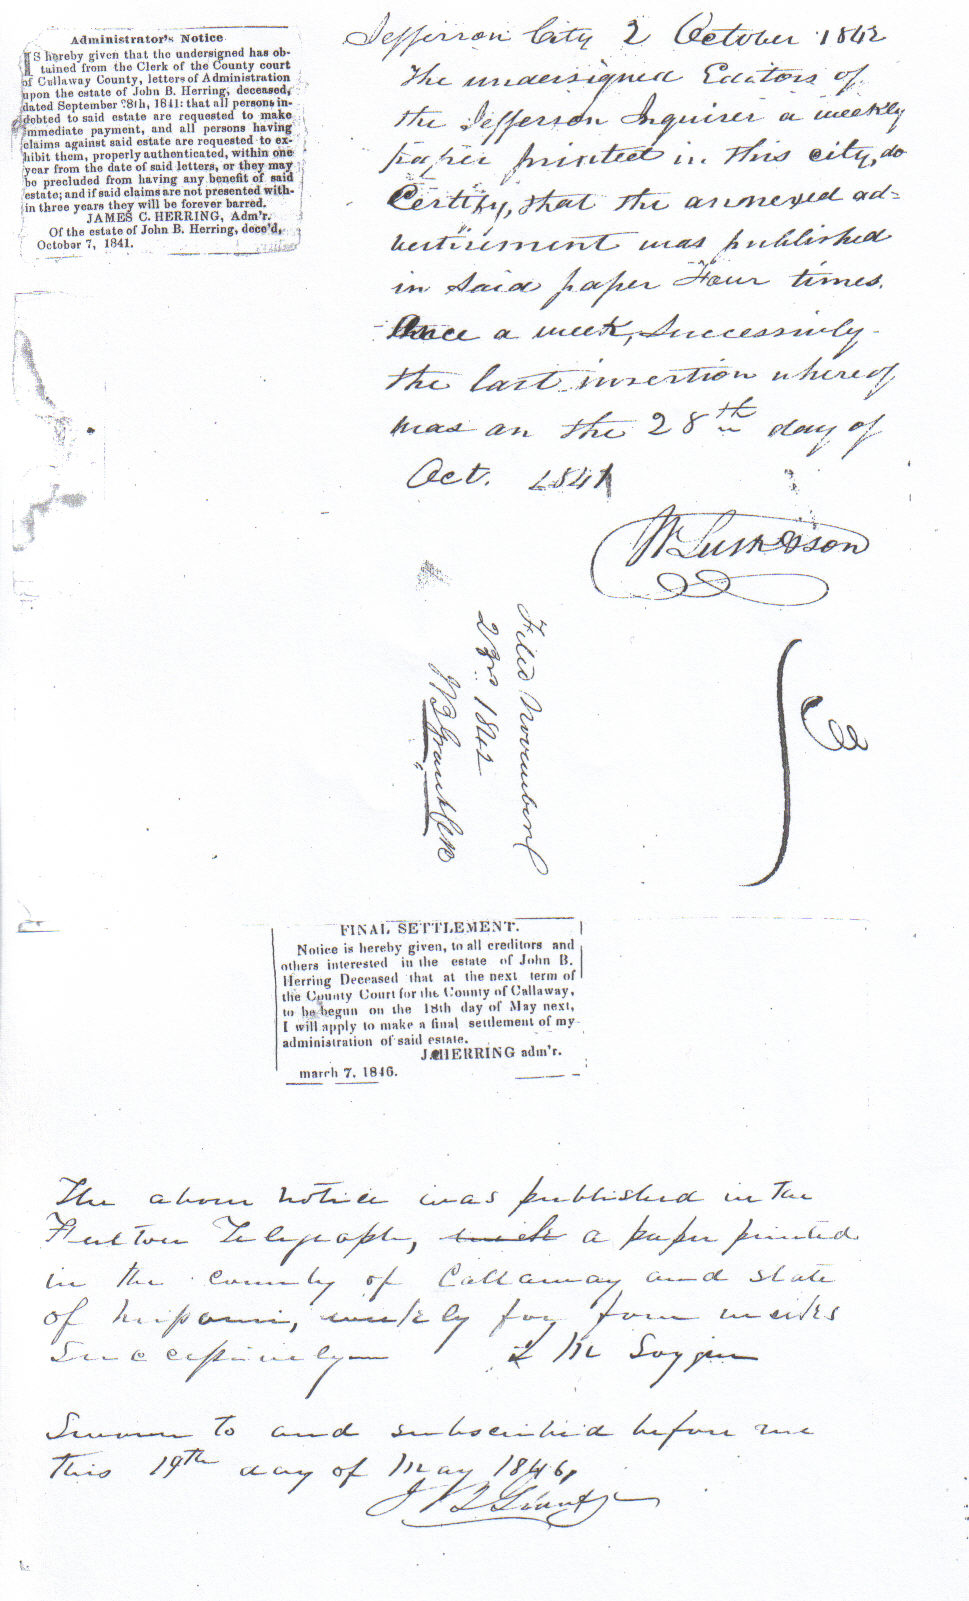 Administrator's Notice
IS hereby given that the undersigned has ob-
tained from the Clerk of the County court
of Callaway County, letters of Administration
upon the estate of John B. Herring, deceased,
dated September 28th, 1841: that all persons in-
debted to said estate are requested to make
immediate payment, and all persons having
claims against said estate are requested to ex-
hibit them, properly authenticated, within one
year from the date of said letters, or they may
be precluded from having any benefit of said
estate; and if said claims are not presented with-
in three years they will be forever barred.
JAMES C. HERRING, Adm'r.
Of the estate of John B. Herring, dece'd,
October 7, 1841.
Jefferson City 2 October 1842
The undersigned Editors of
the Jefferson Inquirer a weekly
paper printed in this city, do
Certify, that the annexed ad=
vertisement was published
in said paper Four times.
Once a week, successively
the last insertion whereof
was on the 28th day of
Oct. 1841
Filed November
23rd 1842
FINAL SETTLEMENT.
Notice is hereby given, to all creditors and
others interested in the estate of John B.
Herring Deceased that at the next term of
the County Court for the County of Callaway,
to be begun on the 18th day of May next,
I will apply to make a final settlement of my
administration of said estate.
J. C. HERRING adm'r.
march 7, 1846.
The above notice was published in the
Fulton Telegraph, a paper printed
in the county of Callaway and state
of Missouri, weekly for four weeks
Successively
Sworn to and subscribed before me
this 19th day of May 1846,